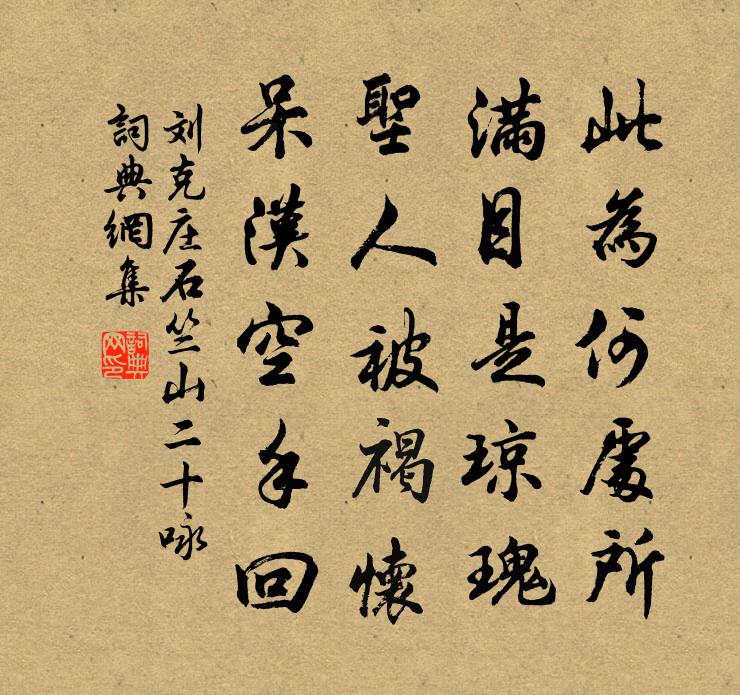 此為何處所
滿目是琼瑰
聖人被褐懷
呆漢空手回
刘克庄石竺山二十咏
詞典網集
詞典網印